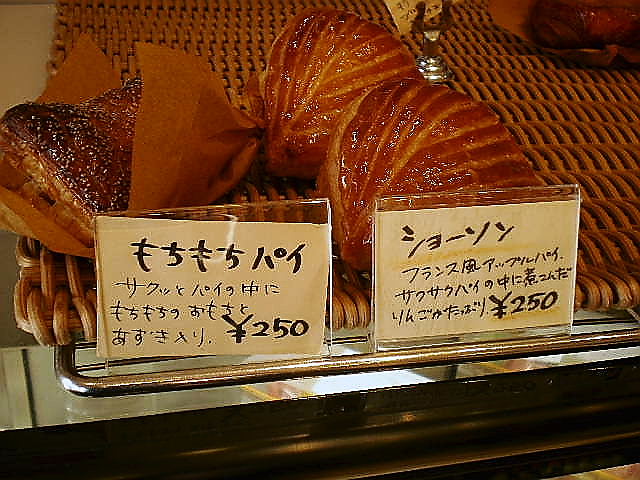 もちもちパイ
サクッとパイの中に
もちもちの おもちと
あずき入り.
¥250
ショーソン
フランス風アップルパイ.
サクサクパイの中に煮こんだ
りんごがたっぷり.
¥250